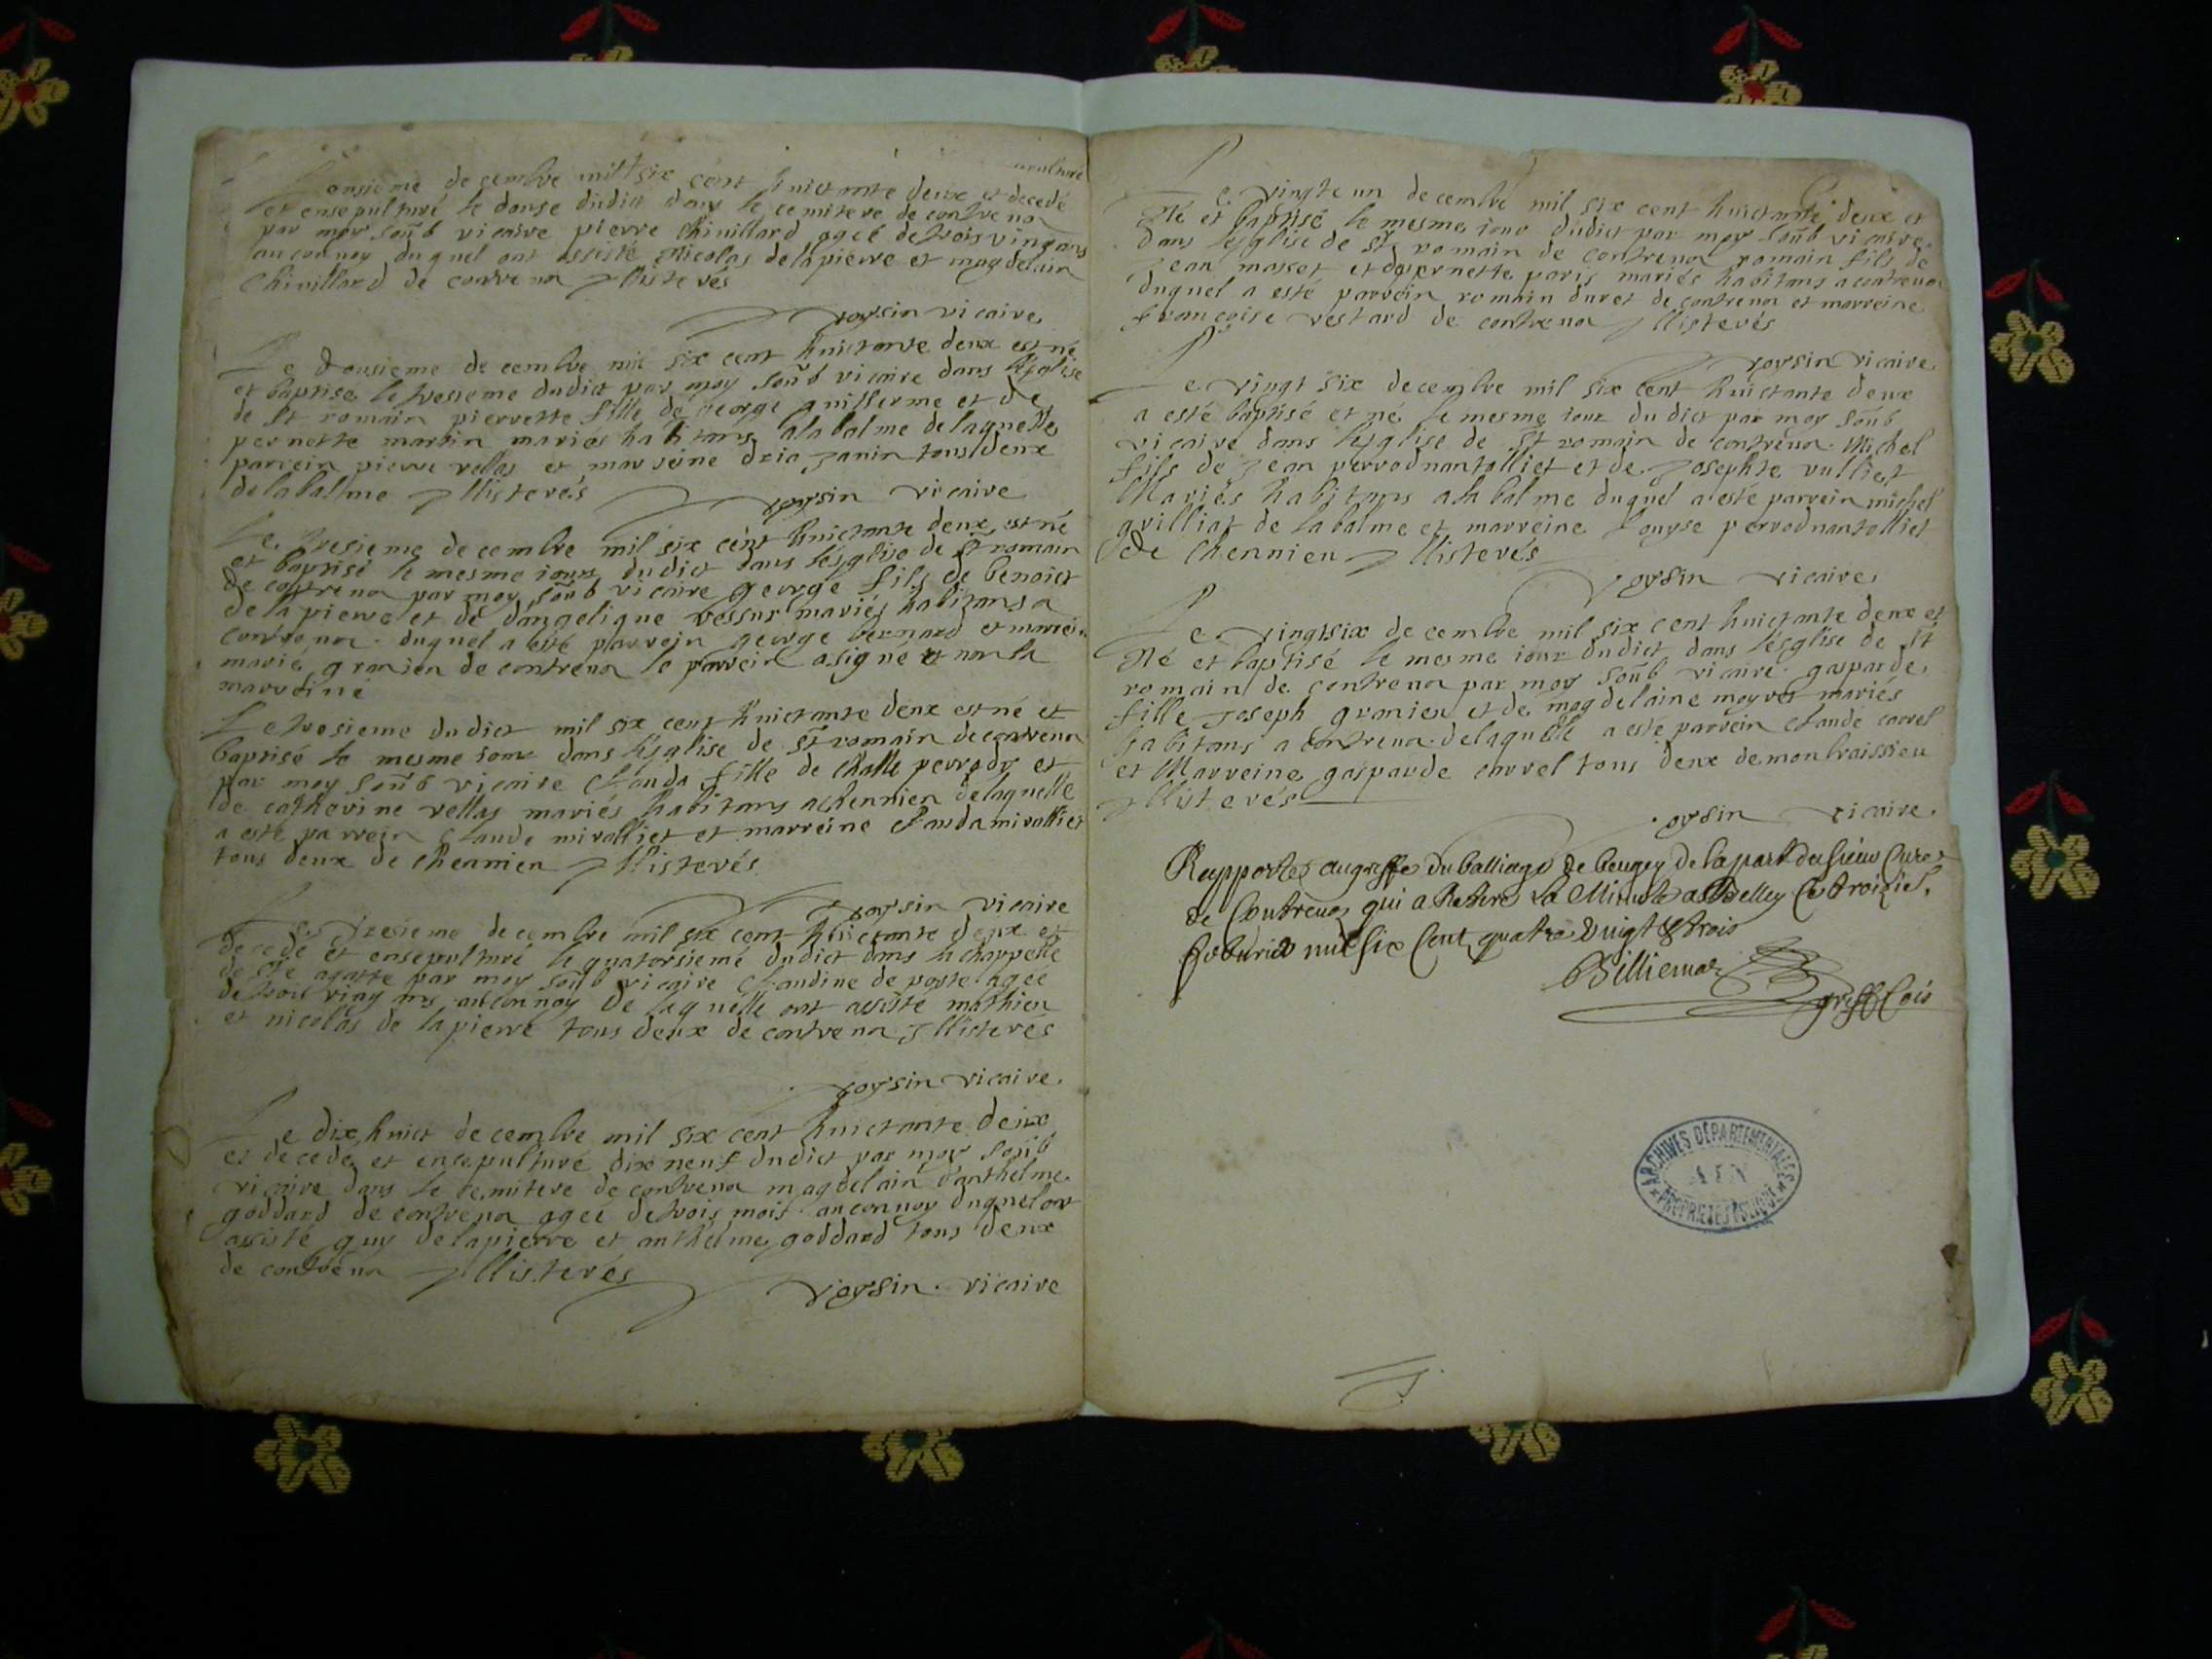 L'onsieme decembre mil six cent huictante deux et decedé
et ensepulturé le douse dudict dans le cemitere de contrevoz
par moy soub vicaire pierre Chivillard ageé de trois ving ans
au convoy duquel ont assisté Nicolas delapierre et magdelain
Chivillard de contrevoz Illisterés
voysin vicaire
Le dousieme decembre mil six cent huictante deux est né
et baptisé le tresieme dudict par moy soub vicaire dans l'esglise
de St romain pierrette fille de george guillerme et de
pernette martin mariés habitans a la balme de laquelle
parrein pierre vellas et marreine janin tous deux
de la balme Illisterés
voysin vicaire
Le tresieme decembre mil six cent huictante deux est né
et baptisé le mesme iour dudict dans l'esglise de St romain
de contrevoz par moy soub vicaire george fils de benoict
delapierre et de dangelique vessur mariés habitans a
contrevoz duquel a esté parrein george bernard et marrein
marie granier de contrevoz le parrein a signé et non la
marreine
Le tresieme dudict mil six cent huictante deux est né et
baptisé le mesme iour dans l'esglise de St romain de contrevoz
par moy soub vicaire Clauda fille de Challe perrodi et
de catherine vellas mariés habitans a chennien de laquelle
a esté parrein Claude miralliet et marreine Clauda miralliet
tous deux de chennien Illisterés
voysin vicaire
Le tresieme decembre mil six cent huictante deux et
decedé et ensepulturé le quatorsieme dudict dans la chappelle
de Ste agatte par moy soub vicaire Claudine de poste ageé
de trois ving ans au convoy de laquelle ont assisté mathieu
et nicolas de lapierre tous deux de contrevoz Illisterés
voysin vicaire
Le dix huict decembre mil six cent huictante deux
et decedé et ensepulturé dix neuf dudict par moy soub
vicaire dans le cemitere de contrevoz magdelain d'anthelme
goddard de contrevoz ageé de trois mois au convoy duquel ont
assisté guy delapierre et anthelme goddard tous deux
de contrevoz Illisterés
voysin vicaire
Le vingte un decembre mil six cent huictante deux et
Né et baptisé le mesme iour dudict par moy soub vicaire
dans l'esglise de St romain de contrevoz romain fils de
Jean masset et de pernette paris mariés habitans a contrevoz
duquel a esté parrein romain duret de contrevoz et marreine
francoise vestard de contrevoz Illisterés
voysin vicaire
Le vingt six decembre mil six cent huictante deux
a esté baptisé et né le mesme iour dudict par moy soub
vicaire dans l'esglise de St romain de contrevoz Michel
fils de Jean perrodnantalliet et de Josephte vulliet
Mariés habitans a la balme duquel a esté parrein michel
guilliat de la balme et marreine Louyse perrodnantalliet
de Chennien Illisterés
voysin vicaire
Le vingtsix decembre mil six cent huictante deux et
Né et baptisé le mesme iour dudict dans l'esglise de St
romain de contrevoz par moy soub vicaire gasparde
fille Joseph granier et de magdelaine moyret mariés
habitans a contrevoz de laquelle a esté parrein Claude carrel
et Marreine gasparde carrel tous deux de montbraissieu
Illisterés
voysin vicaire
Rapporté au greffe du balliage de beugey de la part du sieur Curé
de Contrevoz qui a Retiré La Minute a Belley Ce troizie
febvrier mil six Cent quatre vingt & trois
Billiemaz
greff Cois
ARCHIVES DÉPARTEMENTALES
AIN
PROPRIÉTÉ PUBLIQUE